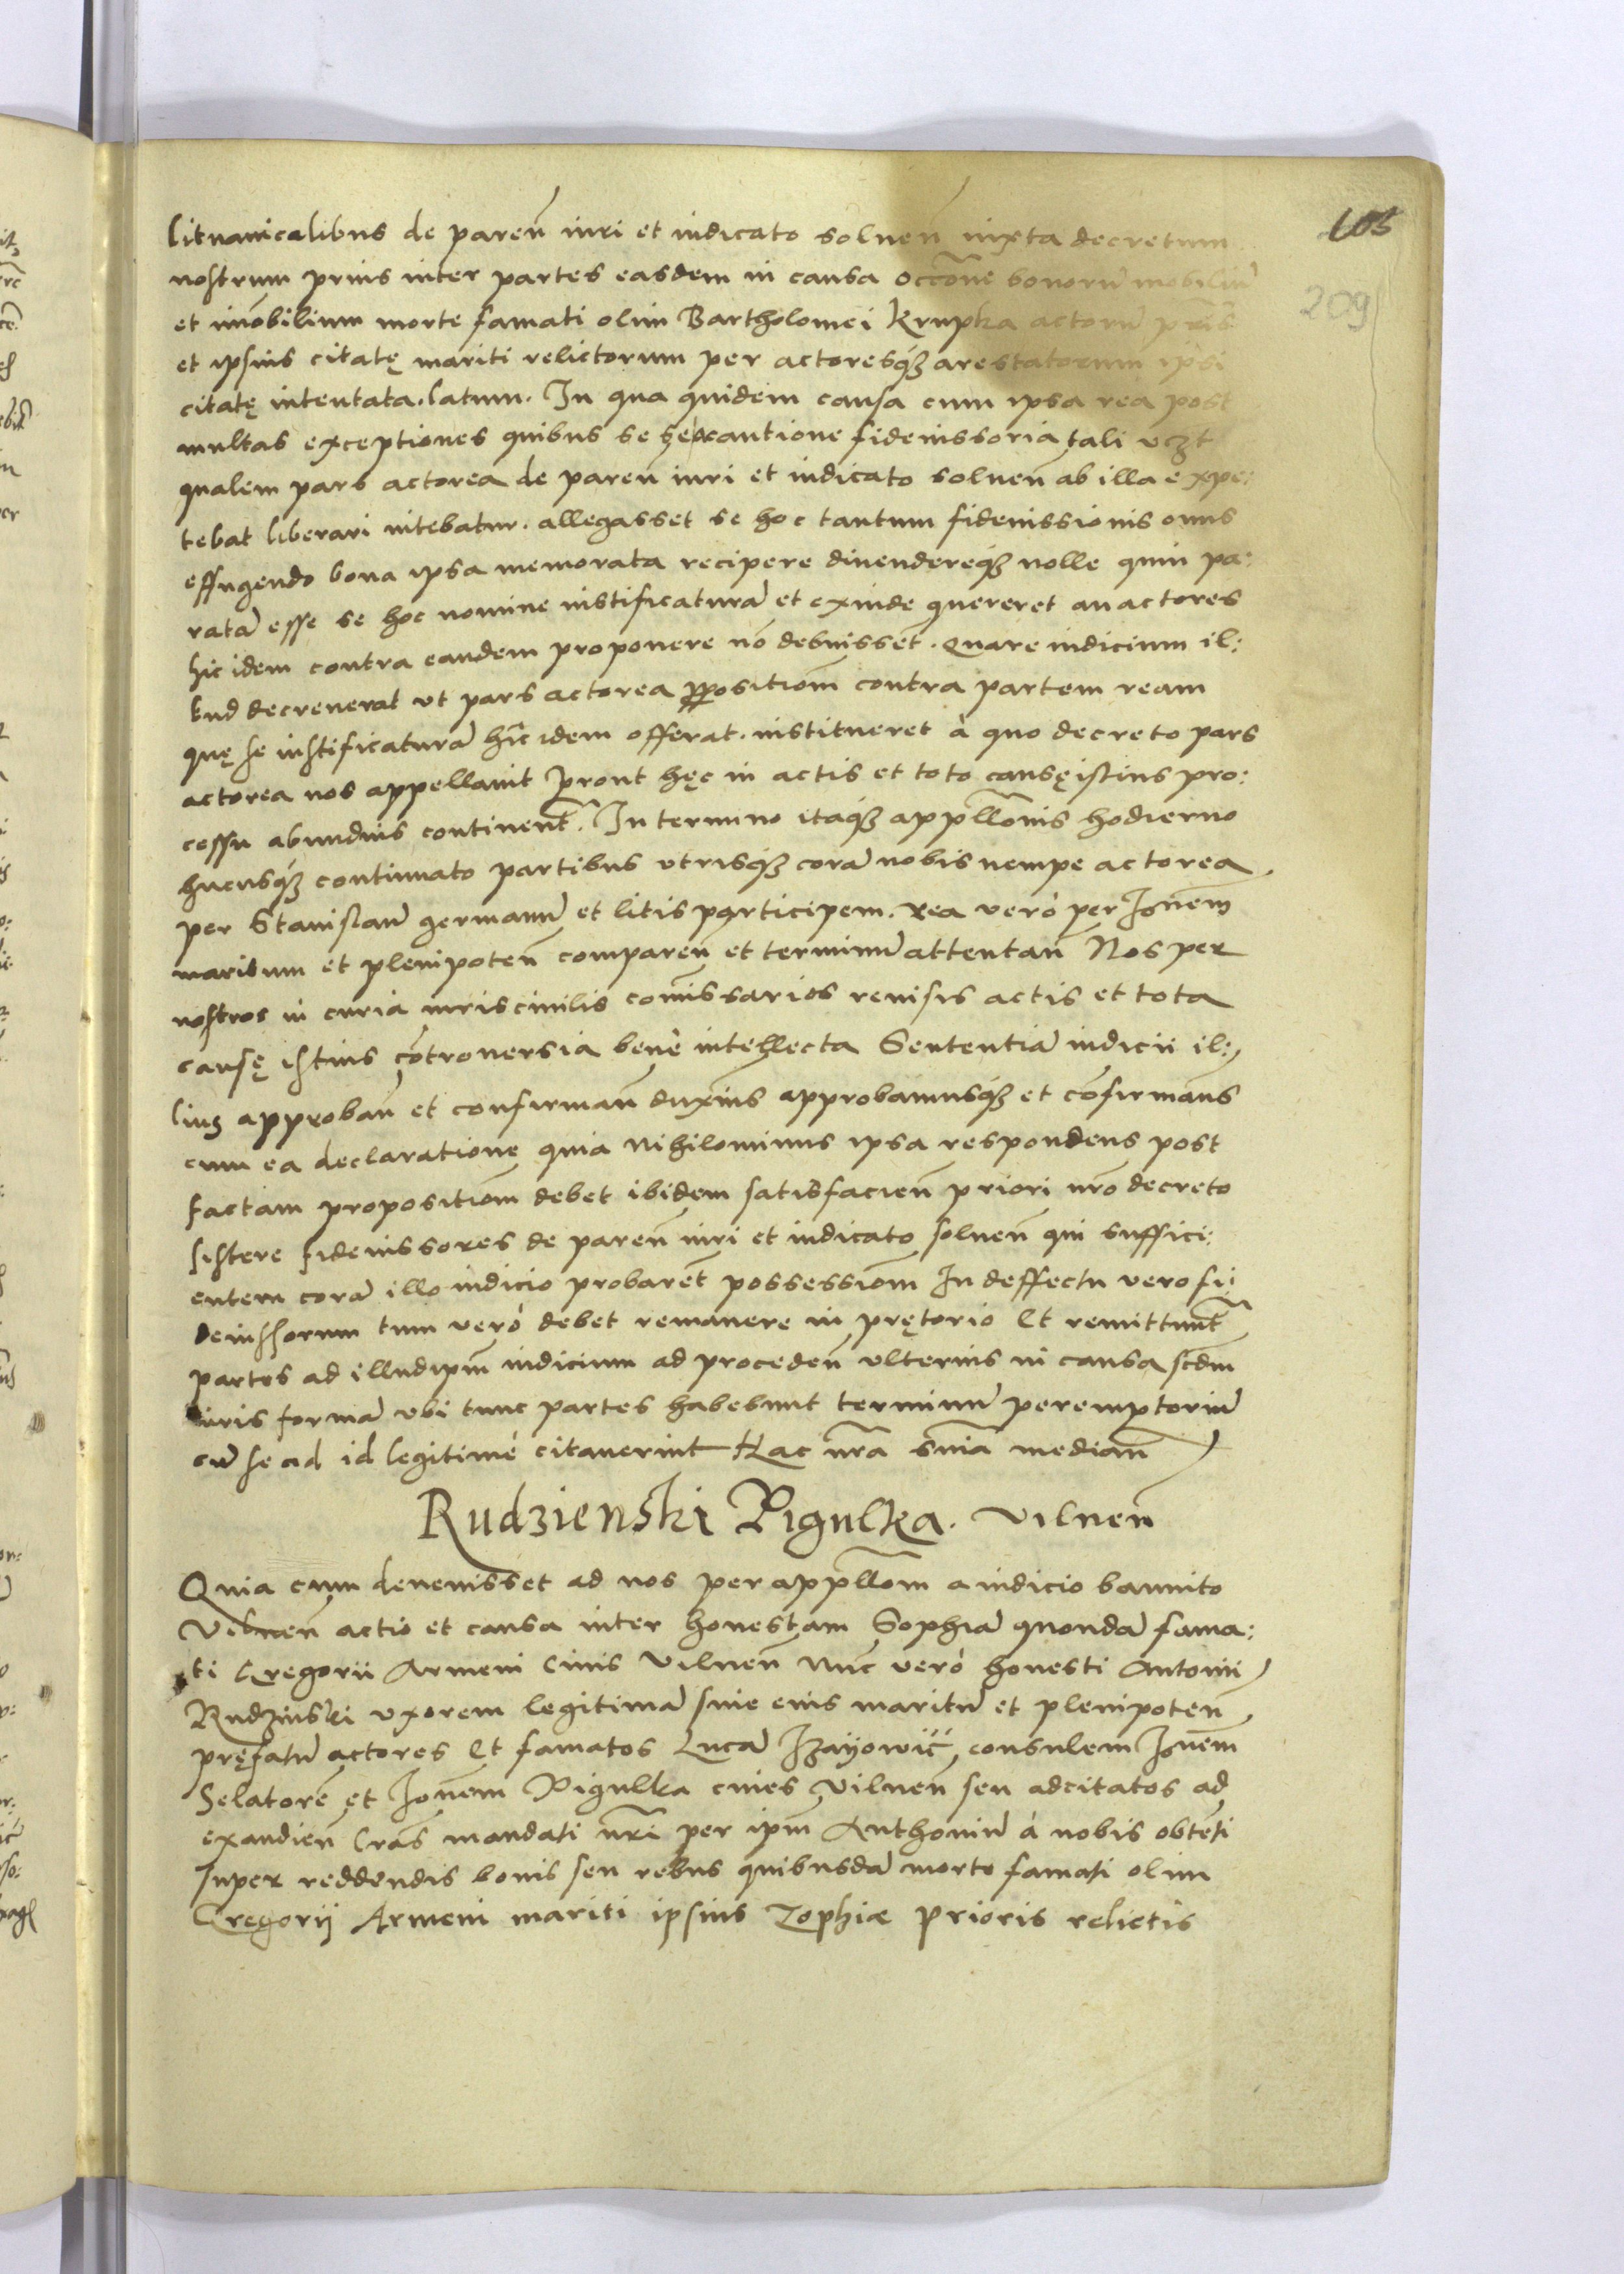 105
209
lituanicalibus de pareñ iuri et iudicato solueñ iuxta decretum
nostrum prius inter partes easdem in causa occõne bonorũ mobiliũ
et imobilium morte famati olim Bartholomei Krupka actorũ pris
et ipsius citatę mariti relictorum per actoresq3 arestatorum ipsi
citatę intentata. latum. In qua quidem causa cum ipsa rea post
multas exceptiones quibus se cautione fideiussoria tali uczt
qualem pars actorea de pareñ iuri et iudicato soluen ab illa expe:
tebat liberari nitebatur. allegasset se hoc tantum fideiussionis onus
effugendo bona ipsa memorata recipere diuendereq3 nolle quin pa:
ratã esse se hoc nomine iustificaturã et exinde quereret an actores
hic idem contra eandem proponere nõ debuisset. Quare iudicium il:
lud decreuerat ut pars actorea propositiom contra partem ream
quę se iustificaturã hic idem offerat. institueret à quo decreto pars
actorea nos appellauit prout hęc in actis et toto causę istius pro:
cessu abundius continent. In termino itaq3 appllonis hodierno
hucusq3 continuato partibus utrisq3 corã nobis nempe actorea
per Stanislaũ germanũ et litis participem. rea verò per Ioñem
maritum et plenipoteñ compareñ et terminũ attentañ Nos per
nostros in curia iuris ciuilis comissarios reuisis actis et tota
causę istius cõtrouersia benè intellecta Sententiã iudicii il:
lius approbañ et confirmañ duximus approbamusq3 et cõfirmams
cum ea declaratione quia nihilominus ipsa respondens post
factam propositiom debet ibidem satisfacieñ priori nro decreto
sistere fideiussores de pareñ iuri et iudicato solueñ qui suffici:
entem corã illo iudicio probarẽt possessiom In deffectu vero fi:
deiussorum tum verò debet remanere in prętorio Et remittunt
partes ad illud ipm iudicium ad procedeñ ulterius in causa scdm
iuris formã ubi tunc partes habebunt terminũ peremptoriũ
cũ se ad id legitimè citauerint Hac nra snia mediañ
Rudzienski Pigulka. Vilneñ
Quia cum deuenisset ad nos per appllom a iudicio bannito
Vilneñ actio et causa inter honestam Sophiã quondã fama:
ti Gregorii Armeni Ciuis Vilneñ nũc verò honesti Antonii
Rudzinski uxorem legitimã siue eius maritũ et plenipoteñ
pręfatũ actores Et famatos Lucã Izayowić consulem Ioñem
Selatorẽ et Ioñem Pigulka ciues Vilneñ seu adcitatos ad
exaudieñ lras mandati nri per ipm Anthoniũ à nobis obtẽti
super reddendis bonis seu rebus quibusdã morte famati olim
Gregorij Armeni mariti ipsius Zophiæ prioris relictis